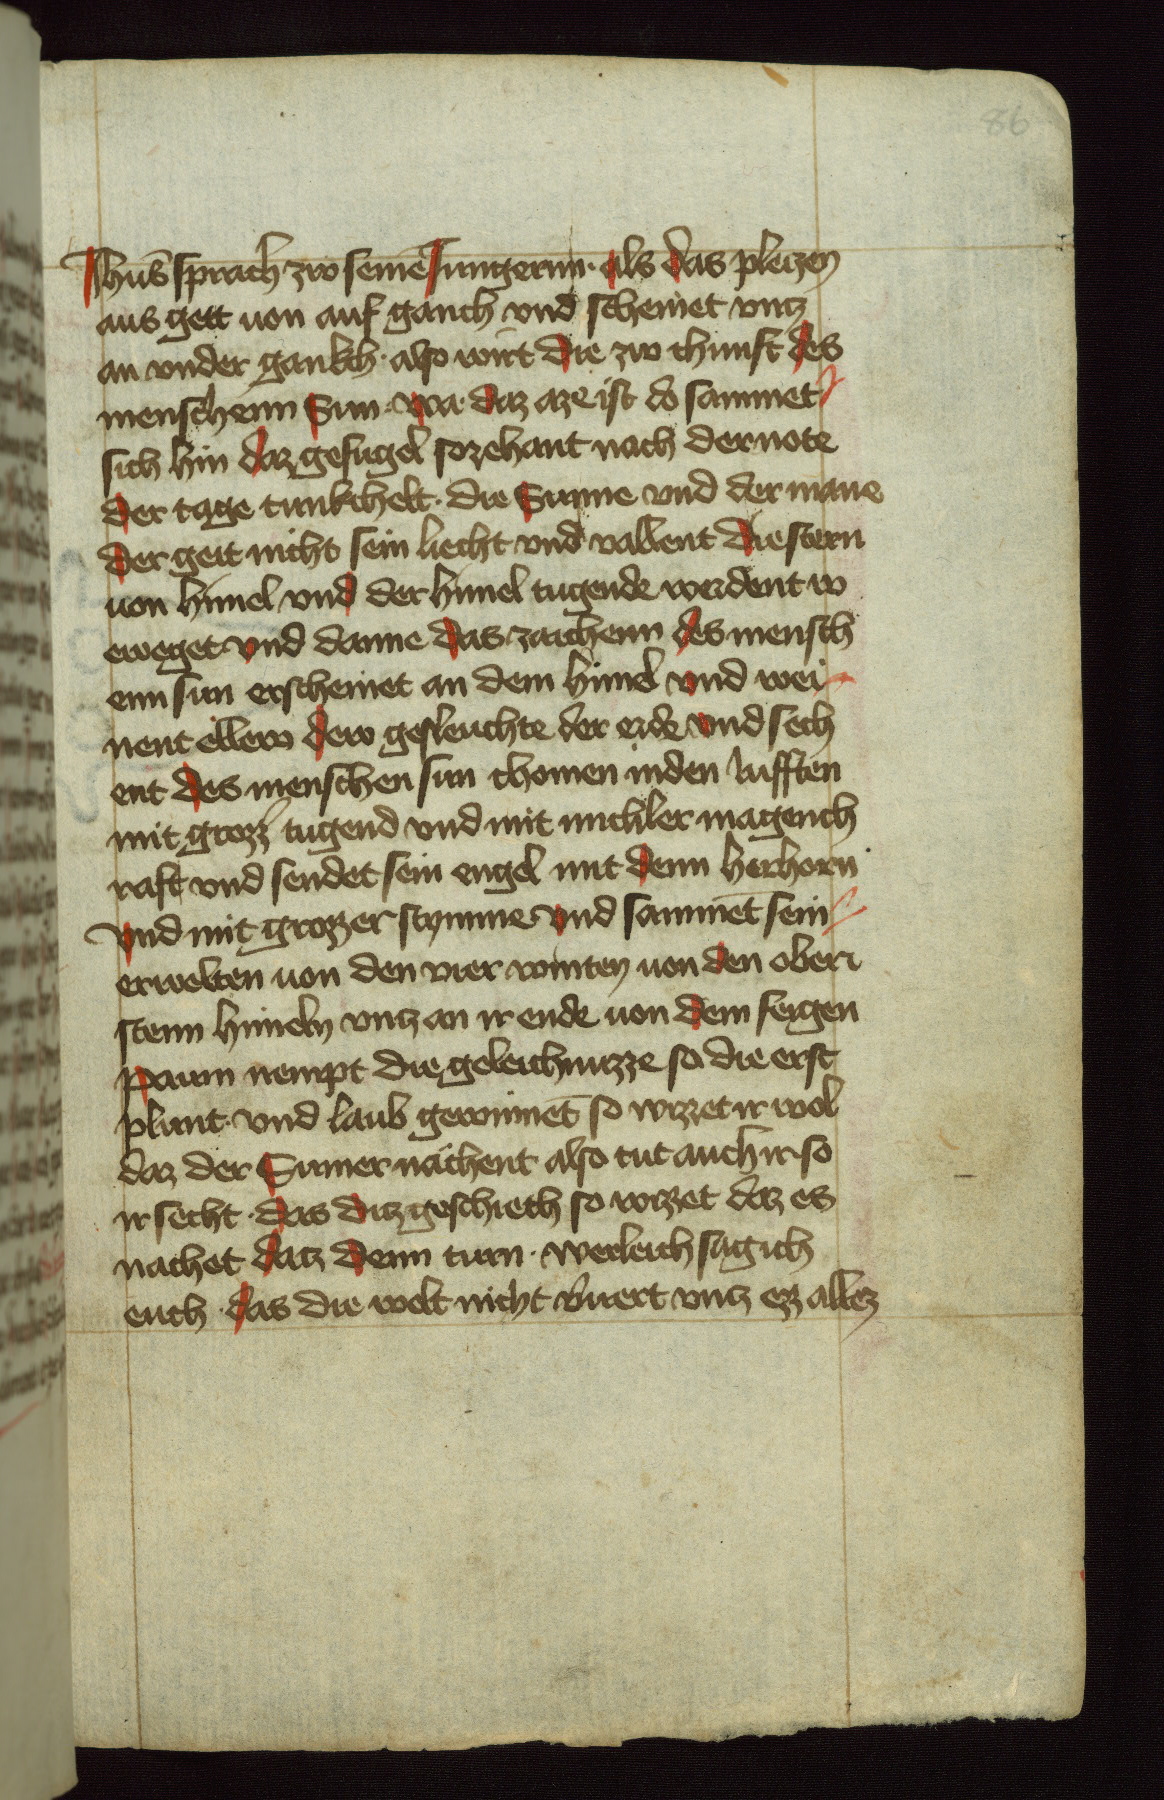 86
Jhus̄ sprach zw seinē Jungernn · als das pleczen
aus gett uon auf ganch vnd scheinet vncz
an vnder gankch · also wirt die zw chunft des
menschenn Sun · wa daz aze ist do sammet
sich hin daz gefugel sozehant nach der note
der tage tunkchelt · die Sunne vnd der mane
der geit nicht sein liecht vnd vallent die stern
uon himel vnd der himel tugende werdent w
eweget vnd danne das zaichenn des mensch
enn sun erscheinet an dem himel vnd wei
nent ellew dew gesleuchte der erde vnd sech
ent des menschen sun chomen inden lufften
mit grozz tugend vnd mit michler magench
raft vnd sendet sein engel mit denn herhorn
vnd mit grozzer stymme vnd sammēt sein
erwelten uon den vier winten uon den ober
stenn himeln vncz an ir ende uon dem feigen
paum nempt die geleichnuzze so die erst
plunt · vnd laub gewinnēt so wizzet ir wol
daz der Sumer nachent also tut auch ir so
ir secht · das diz geschieth so wizzet daz es
nachet dacz denn turn · werleich sag ich
euch · das die welt nicht v̄uert vncz ez allez